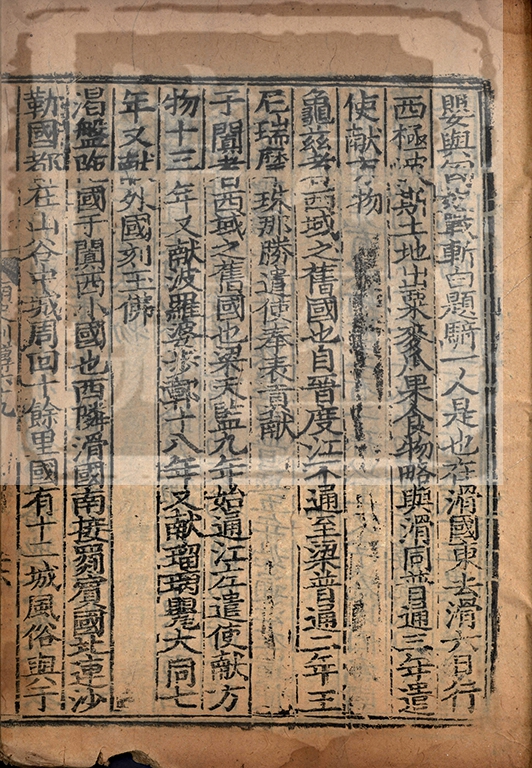 嬰與匈奴戰斬白題騎一人是也在滑國東去滑六日行
西極波斯土地出粟麥瓜果食物略與滑同普通三年遣
使獻方物
龜茲者西域之舊國也自晉度江不通至梁普通二年王
尼瑞摩珠那勝遣使奉表貢獻
于闐者西域之舊國也梁天監九年始通江左遣使獻方
物十三年又獻波羅婆步鄣十八年又獻瑠璃甖大同七
年又獻外國刻玉佛
渴盤陁國于闐西小國也西隣滑國南接罽賓國北連沙
勒國都在山谷中城周回十餘里國有十二城風俗與于